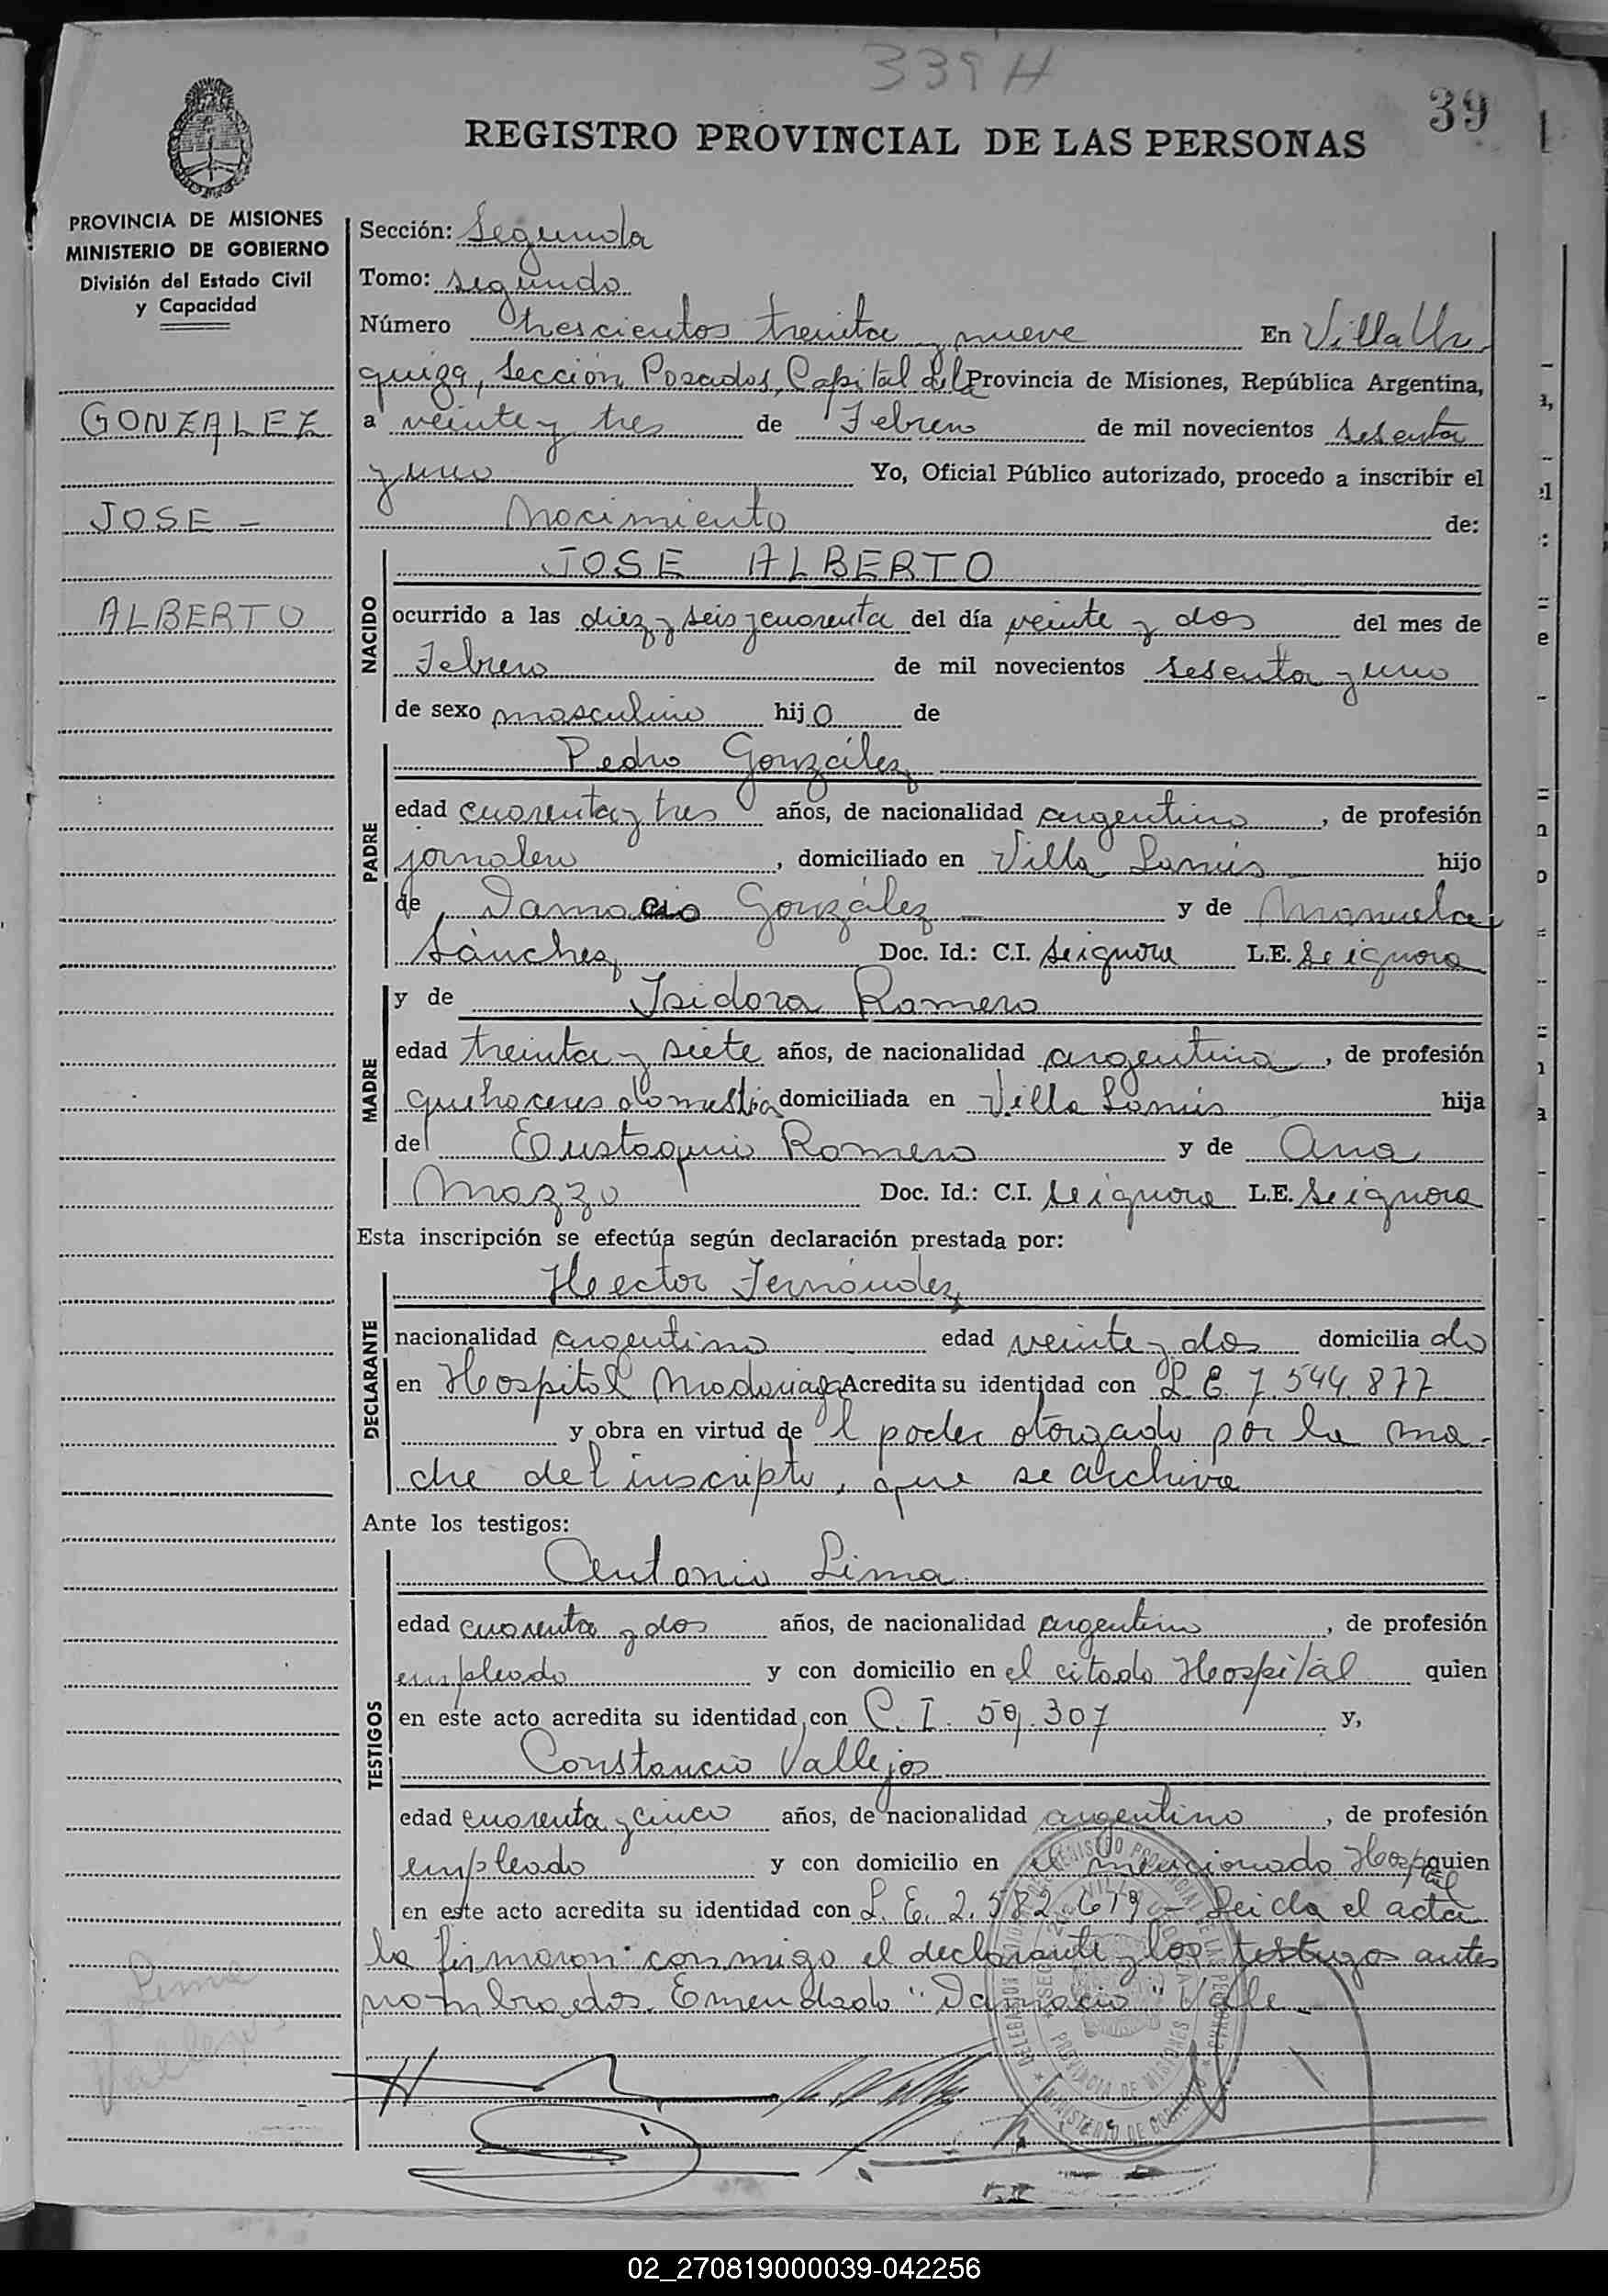 339 H
39
REGISTRO PROVINCIAL DE LAS PERSONAS
PROVINCIA DE MISIONES
MINISTERIO DE GOBIERNO
División del Estado Civil
y Capacidad
GONZALEZ
JOSE -
ALBERTO
Sección: Segunda
Tomo: segundo
Número trescientos treinta y nueve En Villa Ur
quiza, Sección Posadas, Capital de la Provincia de Misiones, República Argentina,
a veinte y tres de Febrero de mil novecientos sesenta
y uno Yo, Oficial Público autorizado, procedo a inscribir el
Nacimiento de:
NACIDO
JOSE ALBERTO
ocurrido a las diez y seis y cuarenta del día veinte y dos del mes de
Febrero de mil novecientos sesenta y uno
de sexo masculino hijo de
PADRE
Pedro González
edad cuarenta y tres años, de nacionalidad argentino, de profesión
jornalero, domiciliado en Villa Lanús hijo
de Damacio González y de Manuela
Sánchez Doc. Id.: C.I. se ignora L.E. se ignora
MADRE
y de Isidora Romero
edad treinta y siete años, de nacionalidad argentina, de profesión
domiciliada en Villa Lanús hija
de Eustaquio Romero y de Ana
Mazzo Doc. Id.: C.I. se ignora L.E. se ignora
Esta inscripción se efectúa según declaración prestada por:
DECLARANTE
Hector Fernández
nacionalidad argentino edad veinte y dos domiciliado
en Hospital Madariaga Acredita su identidad con L. E. 7.544.877
y obra en virtud del poder otorgado por la ma-
dre del inscripto, que se archiva
Ante los testigos:
TESTIGOS
Antonio Lima
edad cuarenta y dos años, de nacionalidad argentino, de profesión
empleado y con domicilio en el citado Hospital quien
en este acto acredita su identidad con C. I. 59.307 y,
Constancio Vallejos
edad cuarenta y cinco años, de nacionalidad argentino, de profesión
empleado y con domicilio en el mencionado Hospital quien
en este acto acredita su identidad con L. E. 2.582.679 - Leida el acta
la firmaron conmigo el declarante y los testigos antes
nombrados. Emendado "Damacio" Vale -
Lima
Vallejos
PROVINCIA DE MISIONES
02_270819000039-042256